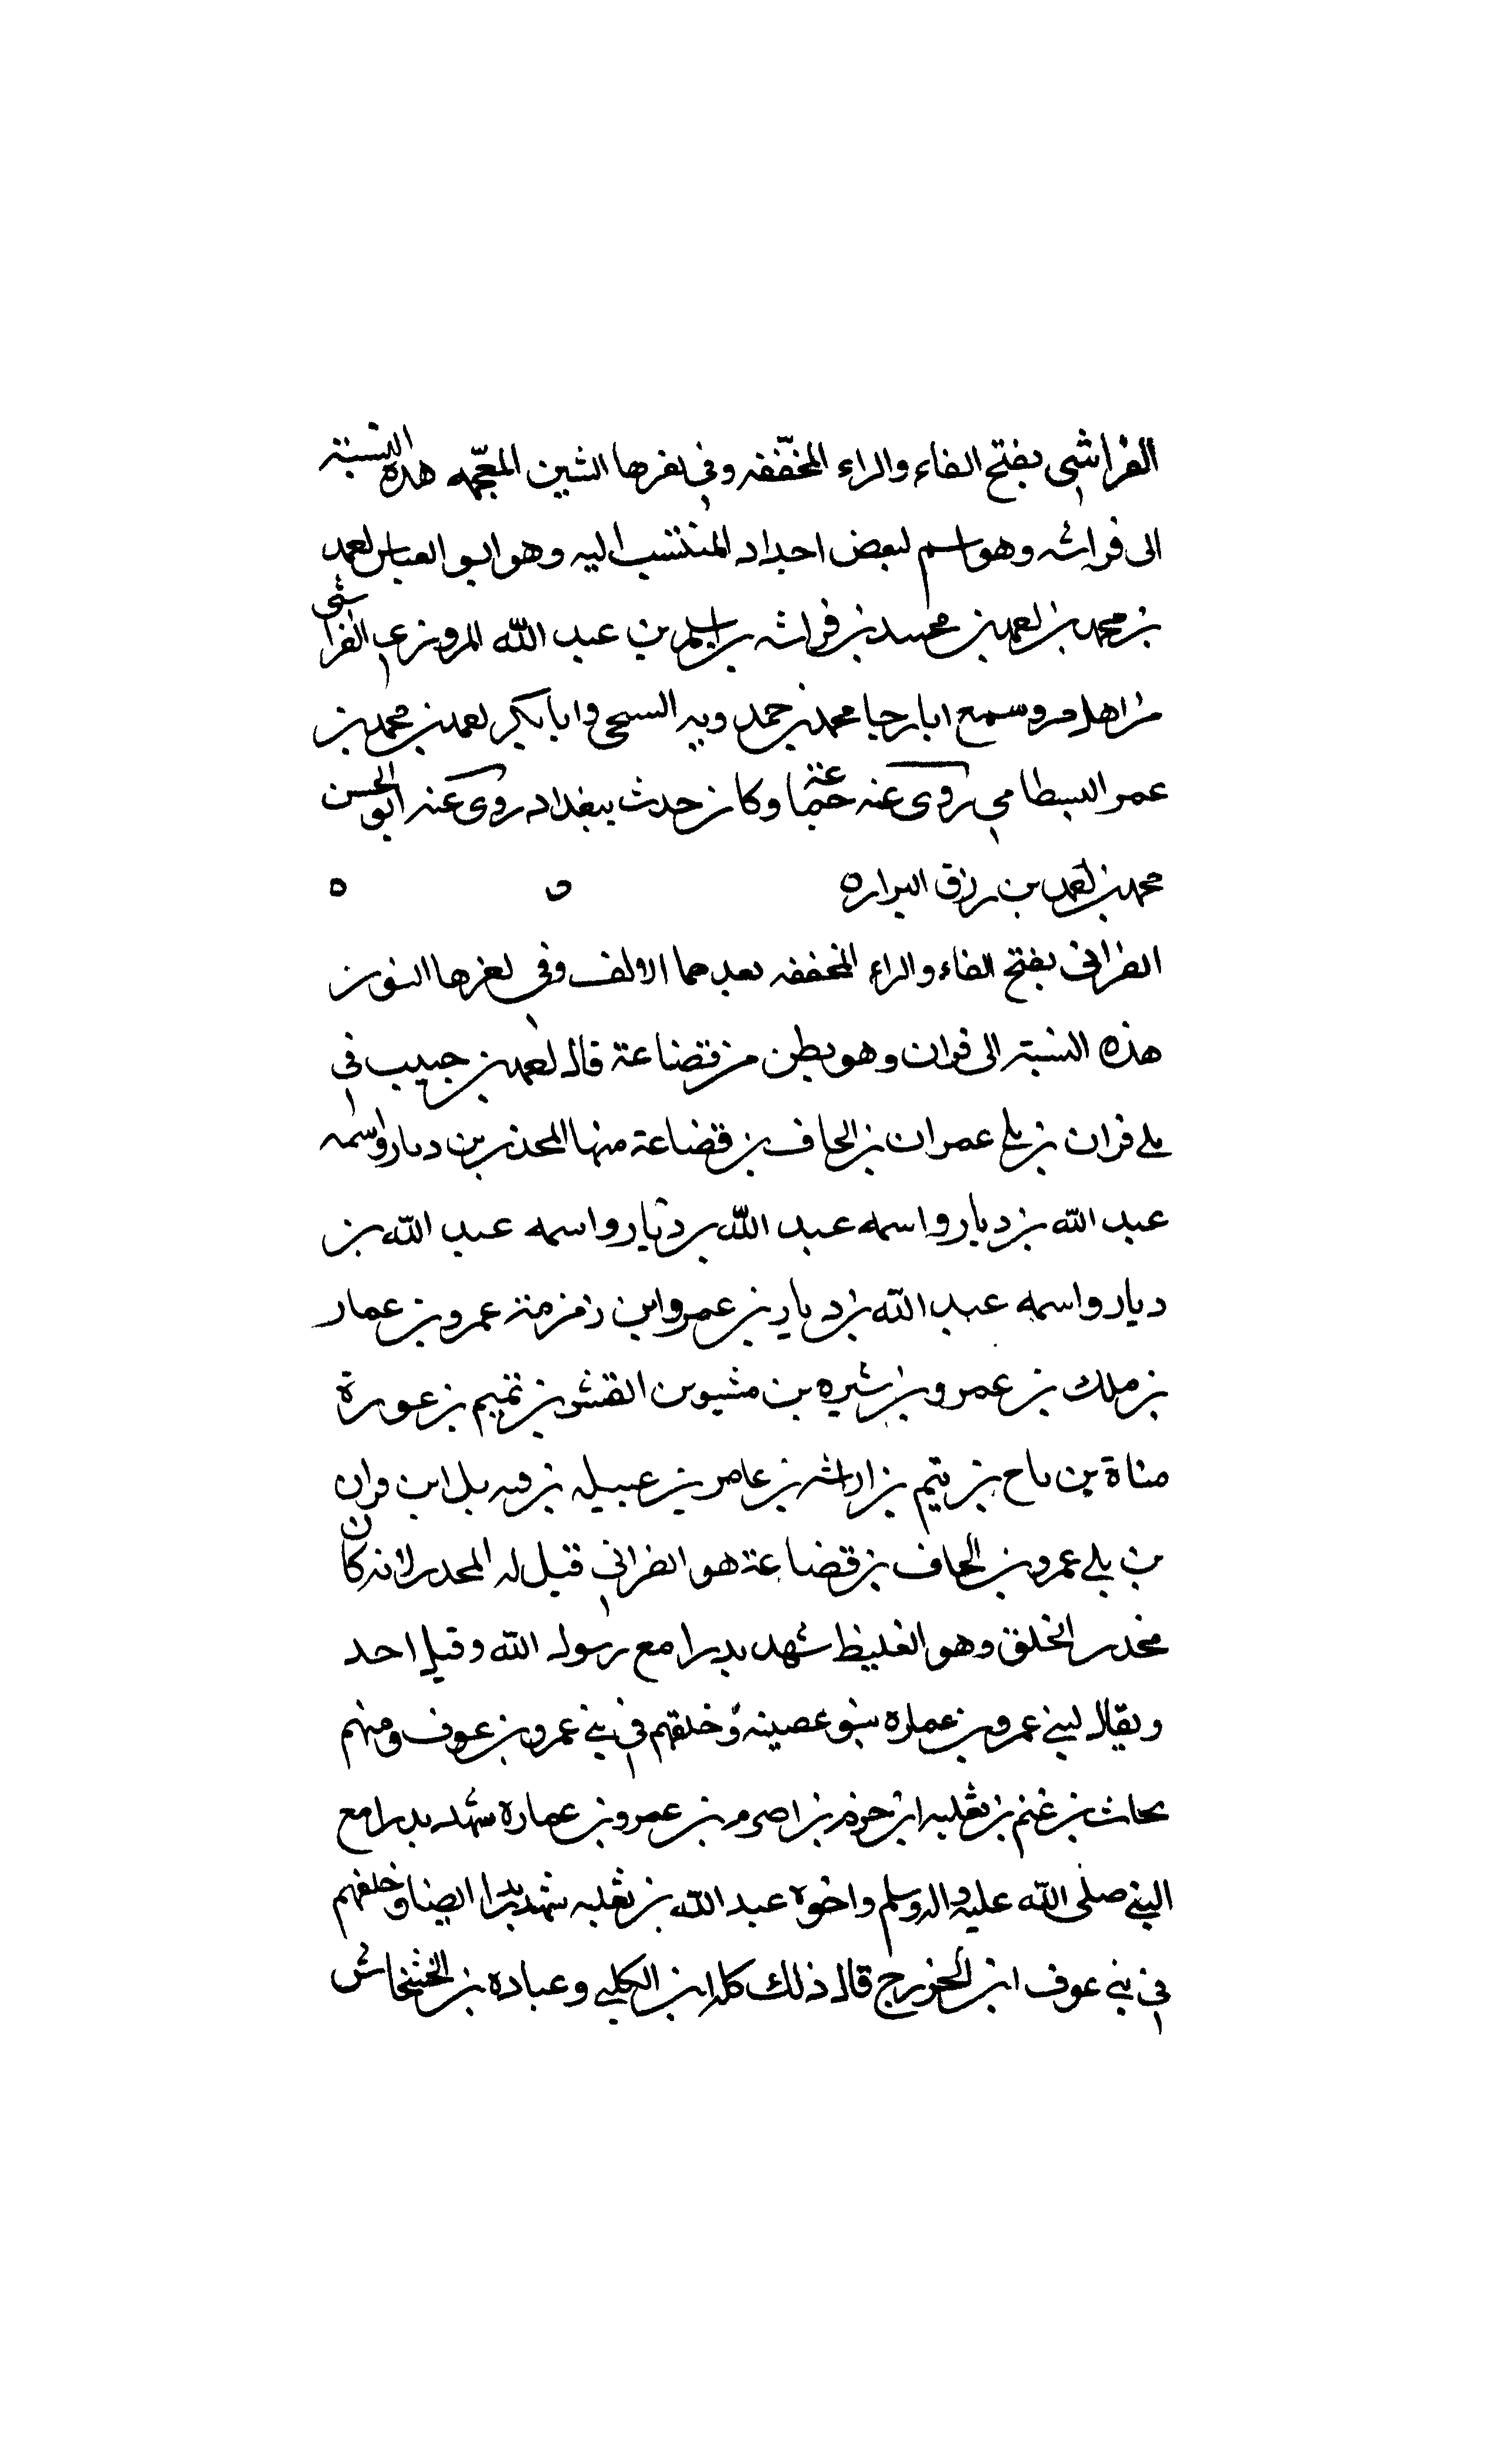 الفراشي بفتح الفاء والراء المخففه وفي اخرها الشين المعجمه هذه النسبة
الى فراشه وهو اسم لبعض اجداد المنتسب اليه وهو ابو العباس احمد
بن محمد بن احمد بن محمد بن فراشه بن اسلم بن عبد الله المروزي الفراشي
من اهل مرو سمع ابا رجا محمد بن حمدويه السنجي وابا بكر احمد بن محمد بن
عمر البسطامي روى عنه وكان حدث ببغداد روى عنه ابو الحسن
محمد بن احمد بن رزق البزاره
الفراني بفتح الفاء والراء المخففه بعدهما الالف وفي اخرها النون
هذه النسبة الى فران وهو بطن من قضاعة قال احمد بن حبيب في
بلي فران بن بلي عمران بن الحاف بن قضاعة منها المجذر بن ديار واسمه
عبد الله بن ديار واسمه عبد الله بن ديار واسمه عبد الله بن
ديار واسمه عبد الله بن ديار بن عمرو ابن زمزمة عمرو بن عمار
بن ملك بن عمرو بن بثيره بن مشنو بن القشر بن تميم بن عوذة
مناة بن باح بن تيم بن اراشه بن عامر بن عبيله بن بل ابن فران
بن بلي عمرو بن الحاف بن قضاعة هو الفراني قيل له المجذر لانه كان
مجذر الخلق وهو الغليظ شهد بدرا مع رسول الله وقتل احد
ويقال لبني عمرو بن عماره بنو غصينه وخلقهم في بني عمرو بن عوف ومنهم
بحاث بن غنم بن ثعلبه ابن خزمه بن اصرم بن عمرو بن عماره شهد بدرا مع
النبي صلى الله عليه واله وسلم واخوه عبد الله بن ثعلبه شهد بدرا ايضا وخلفهم
في بني عوف ابن الخزرج قال ذلك كله ابن الكلبي وعباده بن الخشخاش